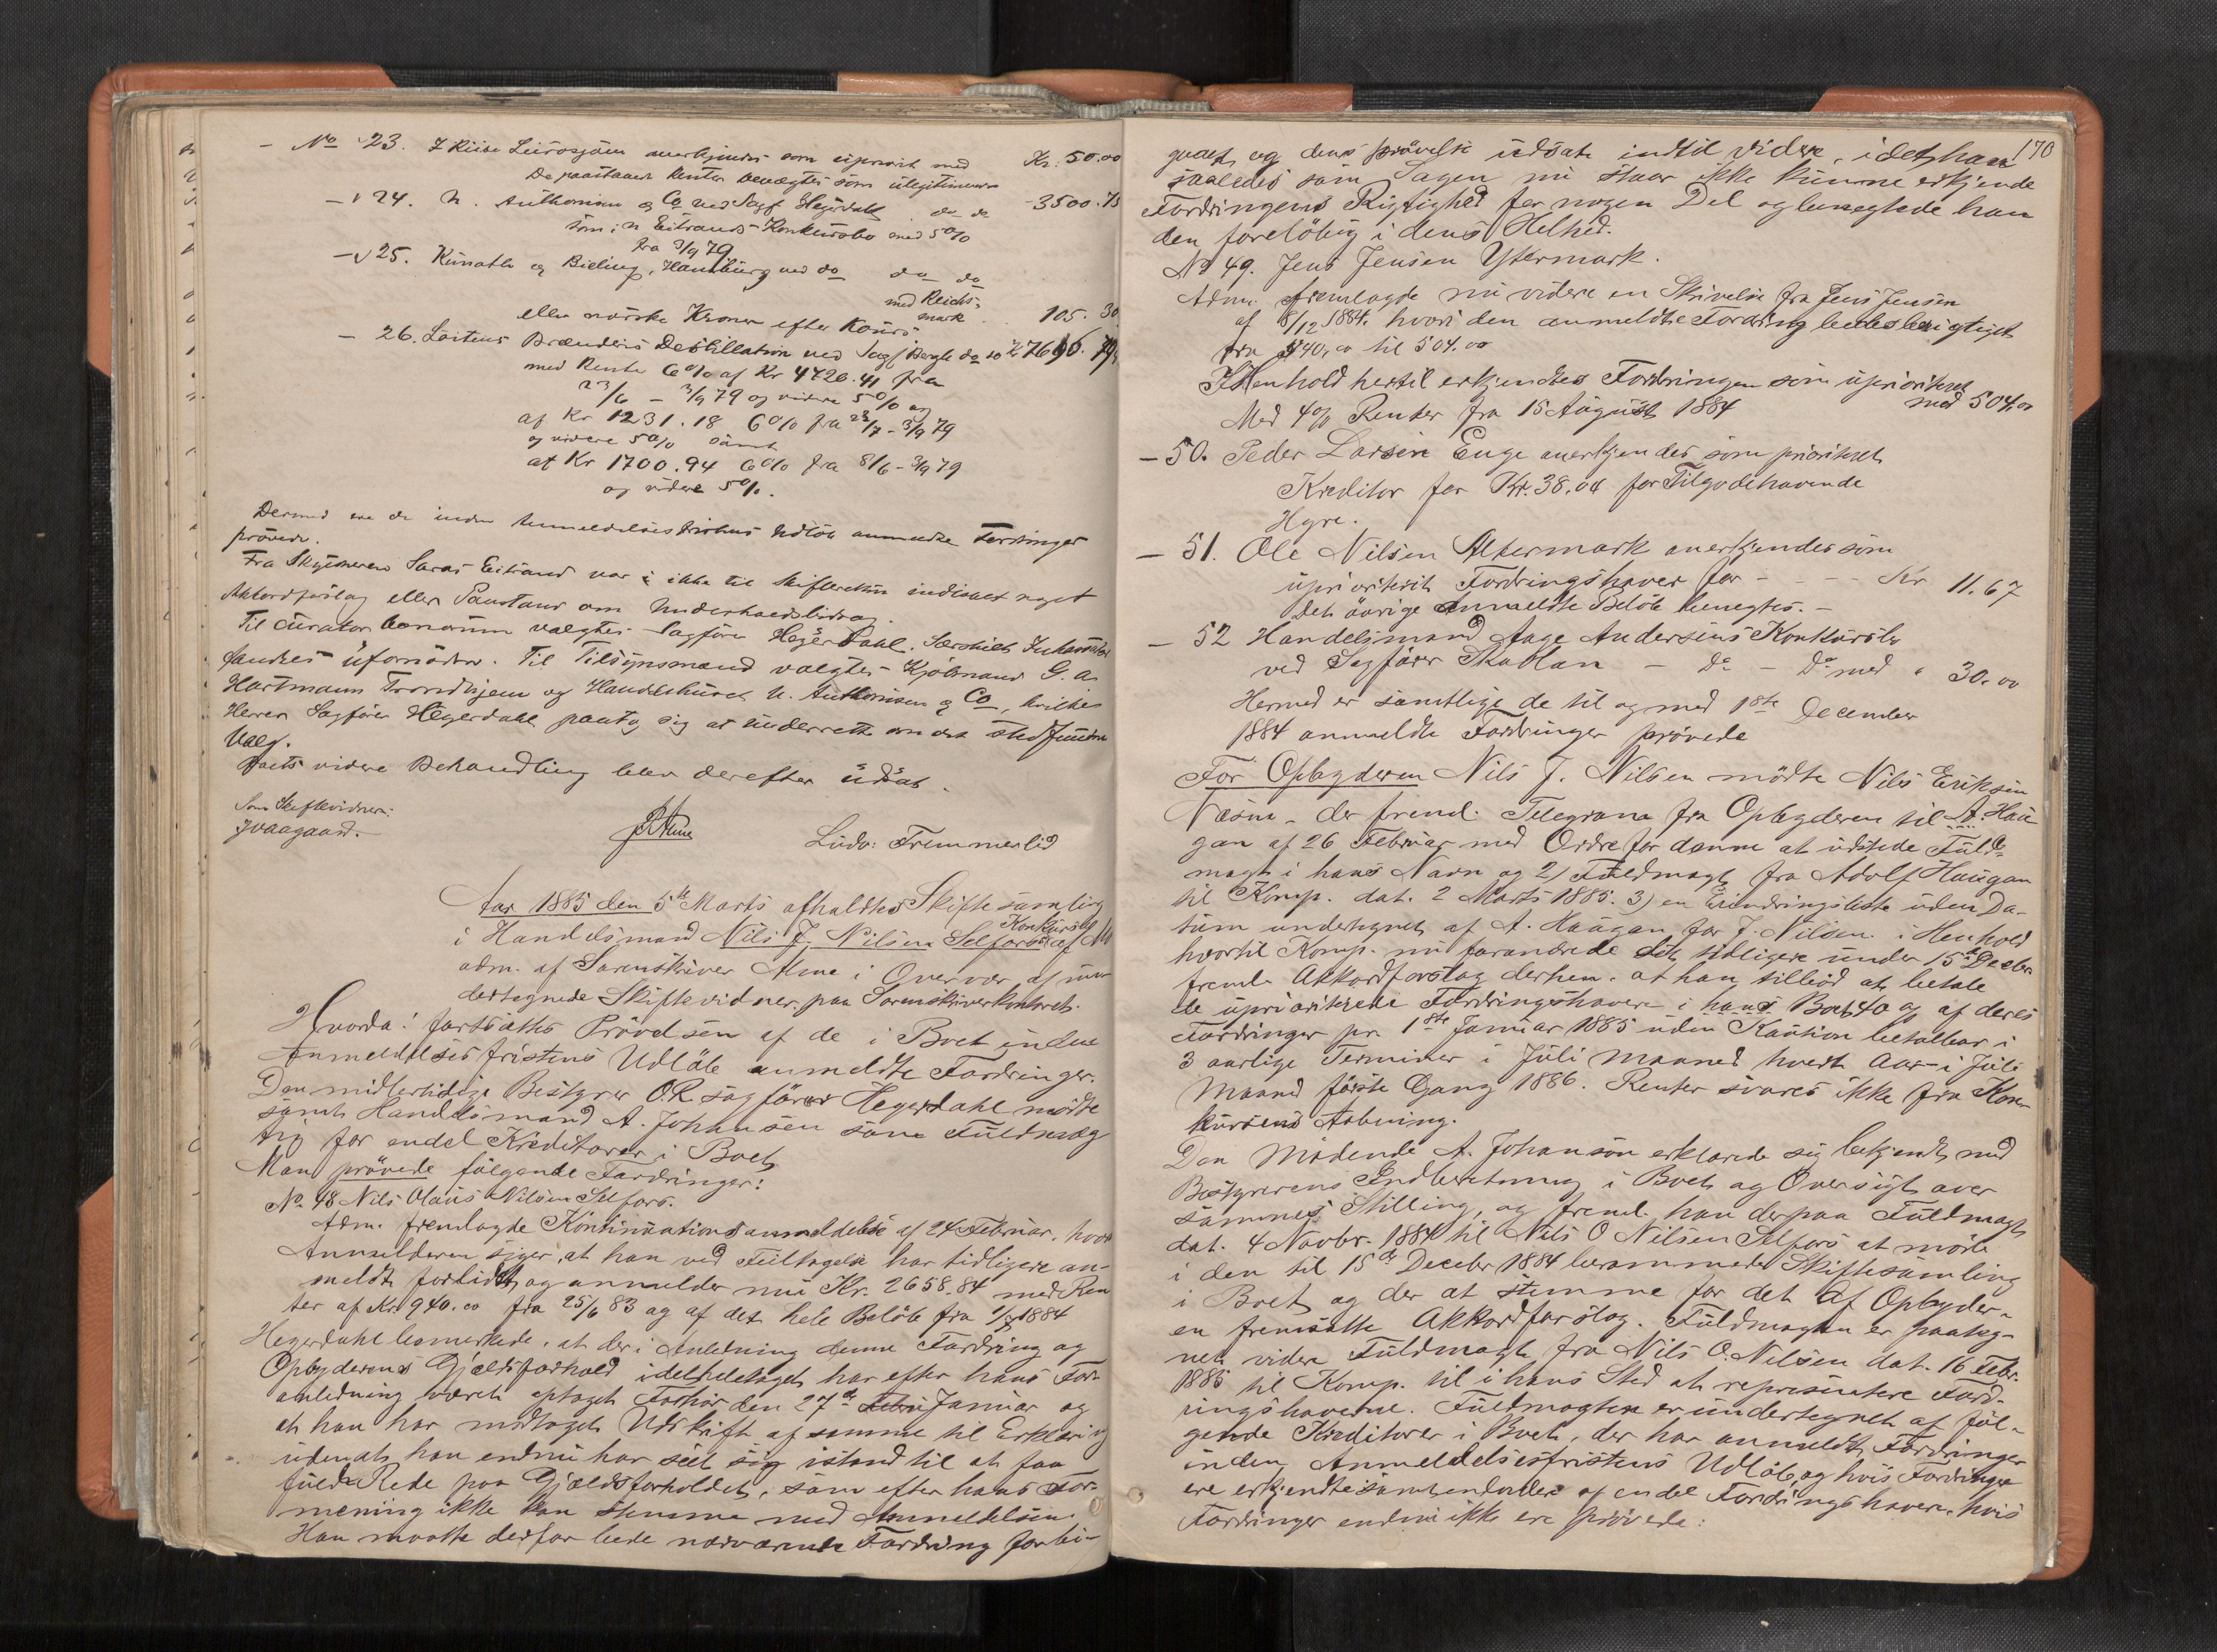 - No 23. J Riise Leirosjøen anerkjendes som uprioritt med Kr. 50.00
De paastaaede Renter benægtes som ulegitimerede
- 24. N. Anthonisen & Co ved Sagf Hegerdahl do do - 3500.73
som i N Eitrands Konkursbo med 5%
fra 3/9 79
- 25. Kunath og Bieling, Hamburg ved do do do
med Reichs-
mark 105.30
eller norske Kroner efter Kours
- 26. Løitens Brænderis Destillation ved Sagf Bergh do do
med Rente 6% af Kr 4720.41 fra
23/6 - 3/9 79 og videre 5% og
af Kr 1231.18 6% fra 23/7 - 3/9 79
og videre 5% samt
af Kr 1700.94 6% fra 8/6 - 3/9 79
og videre 5%.
Dermed ere de inden Anmeldelsesfristens Udløb anmeldte Fordringer
prøvede.
Fra Skyldneren Saras Eitrand var ikke til Skifteretten indkommet noget
Akkordforslag eller Paastand om Underholdsbidrag.
Til Curator bonorum valgtes Sagfører Hegerdahl. Særskilt Inkassator
fandtes ufornøden. Til Tilsynsmænd valgtes Kjøbmand G. A.
Hartmann Trondhjem og Handelshuset N. Anthonisen & Co, hvilke
Herrer Sagfører Hegerdahl paatog sig at underrette om det stedfundne
Valg.
Boets videre Behandling blev derefter udsat.
Som Skiftevidner:
J Vaagaard.
Ludv: Fremmerlid
Aar 1885 den 5te Marts afholdtes Skiftesamling
i Handelsmand Nils J. Nilsen Selfors Konkursbo af Mo
adm. af Sorenskriver Alme i Overvær af un-
dertegnede Skiftevidner paa Sorenskriverkontoret.
Hvorda: fortsattes Prøvelsen af de i Boet inden
Anmeldelsesfristens Udløb anmeldte Fordringer.
Den midlertidige Bestyrer O.R sagfører Hegerdahl mødte
samt Handelsmand A. Johansen som Fuldmæg
tig for endel Kreditorer i Boet
Man prøvede følgende Fordringer:
No 48 Nils Olaus Nilsen Selfors.
Adm. fremlagde Kontinuationsanmeldelse af 24 Februar, hvori
Anmelderen siger, at han ved Feiltagelse har tidligere an-
meldt forlidt, og anmelder nu Kr. 2658.84 med Ren
ter af Kr 940.00 fra 25/6 83 og af det hele Beløb fra 1/8 1884
Hegerdahl bemerkede, at der i Anledning denne Fordring og
Opbyderens Gjældsforhold idethetetaget har efter hans For-
anledning været optaget Forhør den 27de Januar og
at han har modtaget Udskrift af samme til Erklæring
udenat han endnu har seet sig istand til at faa
fuld Rede paa Gjældsforholdet, som efter hans For-
mening ikke kan stemme med Anmeldelsen.
Han maatte derfor bede nærværende Fordring forbi-
170
gaaet og dens Prøvelse udsat indtil videre, idet han
saaledes som Sagen nu staar ikke kunne erkjende
Fordringens Rigtighed for nogen Del og benegtede han
den foreløbig i dens Helhed.
No 49. Jens Jensen Ytermark.
Adm. fremlagde nu videre en Skrivelse fra Jens Jensen
af 8/12 1884. hvori den anmeldte Fordring bedes berigtiget
fra 440,00 til 504.00
I Henhold hertil erkjendtes Fordringen som uprioriteret
med 504.00
Med 4% Renter fra 15 August 1884
- 50. Peder Larsen Enge anerkjendes som prioriteret
Kreditor for Kr. 38.04 for Tilgodehavende
Hyre.
- 51. Ole Nilsen Altermark anerkjendes som
uprioriteret Fordringshaver for - - - - Kr 11.67
Det øvrige anmeldte Beløb benegtes. -
- 52 Handelsmand Aage Andersens Konkursbo
ved Sagfører Skablan - Do - Do med " 30.00
Hermed er samtlige de til og med 1ste December
1884 anmeldte Fordringer prøvede
For Opbyderen Nils J. Nilsen mødte Nils Eriksen
Næsna - der freml. Telegram fra Opbyderen til A. Hau
gan af 26 Februar med Ordre for denne at udstede Fuld-
magt i hans Navn og 2) Fuldmagt fra Adolf Haugan
til Komp. dat. 2 Marts 1885. 3) en Erindringsliste uden Da-
tum undertegnet af A. Haugan for J. Nilsen. i Henhold
hvortil Komp. nu forandrede det tidligere under 15de Decbr
freml. Akkordforslag derhen. at han tilbød at betale
de uprioriterede Fordringshavere i hans Bo 40 % af deres
Fordringer pr. 1ste Januar 1885 uden Kaution betalbar i
3 aarlige Terminer i Juli Maaned hvert Aar - i Juli
Maaned første Gang 1886. Renter svares ikke fra Kon-
kursens Aabning.
Den Mødende A. Johansen erklærede sig bekjendt med
Bestyrerens Indberetning i Boet og Oversigt over
sammes Stilling, og freml. han derpaa Fuldmagt
dat. 4 Novbr. 1884 til Nils O Nilsen Selfors at møde
i den til 15de Decebr 1884 berammede Skiftesamling
i Boet og der at stemme for det af Opbyder-
en fremsatte Akkordforslag. Fuldmagten er paateg-
net videre Fuldmagt fra Nils O. Nilsen dat. 16 Febr.
1885 til Komp. til i hans Sted at representere Ford-
ringshaverne. Fuldmagten er undertegnet af føl-
gende Kreditorer i Boet, der har anmeldt Fordringer
inden Anmeldelsesfristens Udløb, og hvis Fordringer
ere erkjendte samt endvidere af endel Fordringshavere, hvis
Fordringer endnu ikke ere prøvede: